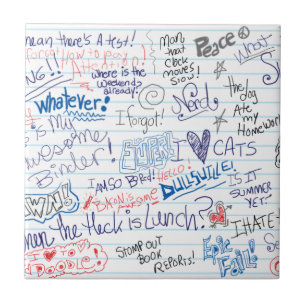 mean there's A test!
Forgot How to pay
Attention
where is the
Weekends
already!
Man
that
clock
moves
Slow!
Peace
What
Whatever!
I forgot!
Nerd
the dog
Ate
my
Homework
is My
Awesome
Binder!
SUPER!
I ♥ CATS
HELLO!
DULLSVILLE!
I AM SO BORED!
BACON is awesome
IS IT
SUMMER
YET?
When the Heck is Lunch?
I HATE
I ♥ TO
DOODLE!
STOMP OUT
BOOK
REPORTS!
Epic
Fail!